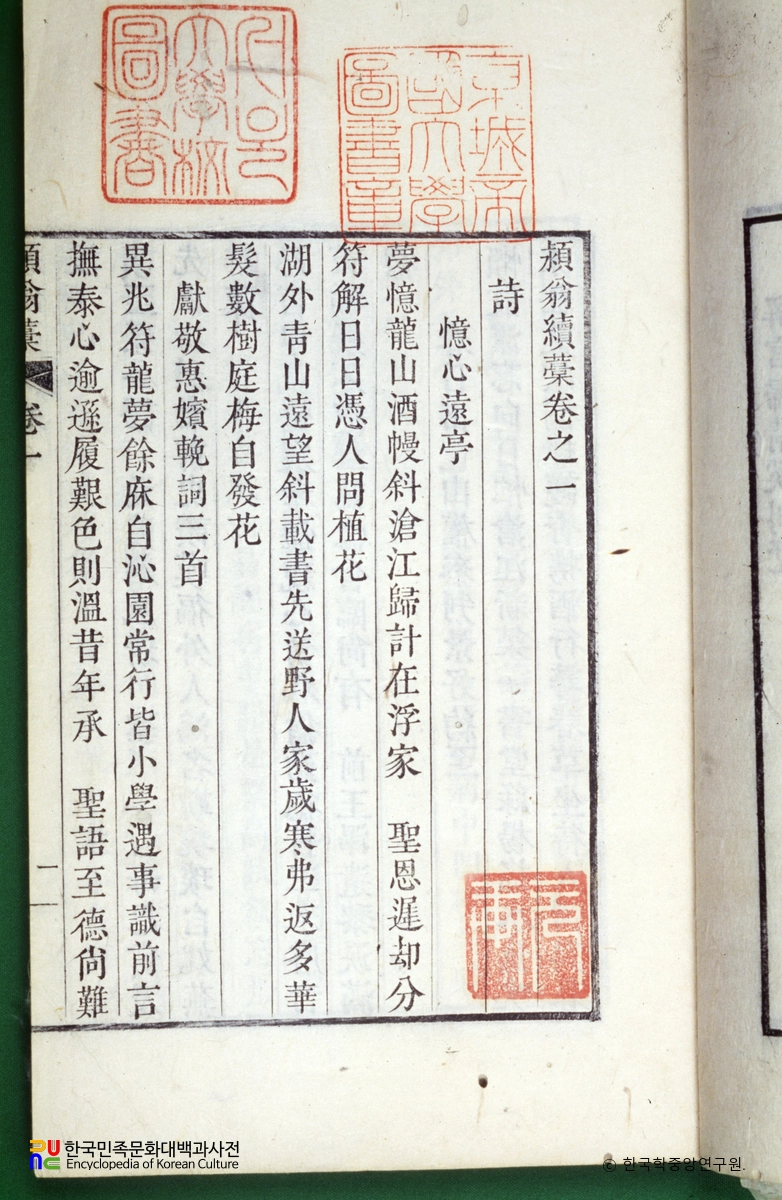 서울大學校圖書
京城帝國大學圖書章
潁翁續藁卷之一
詩
憶心遠亭
夢憶龍山酒幔斜滄江歸計在浮家　聖恩遲却分
符解日日憑人問植花
湖外青山遠望斜載書先送野人家歲寒弗返多華
髮數樹庭梅自發花
獻敬惠嬪輓詞三首
異兆符龍夢餘庥自沁園常行皆小學遇事識前言
撫泰心逾遜履艱色則溫昔年承　聖語至德尚難
潁翁藁　卷一　一
한국민족문화대백과사전
Encyclopedia of Korean Culture
© 한국학중앙연구원.